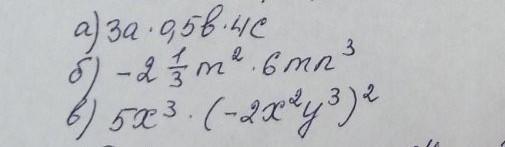 а) 3а · 0,5в · 4с
б) -2 1/3 m² · 6mn³
в) 5x³ · (-2x²y³)²